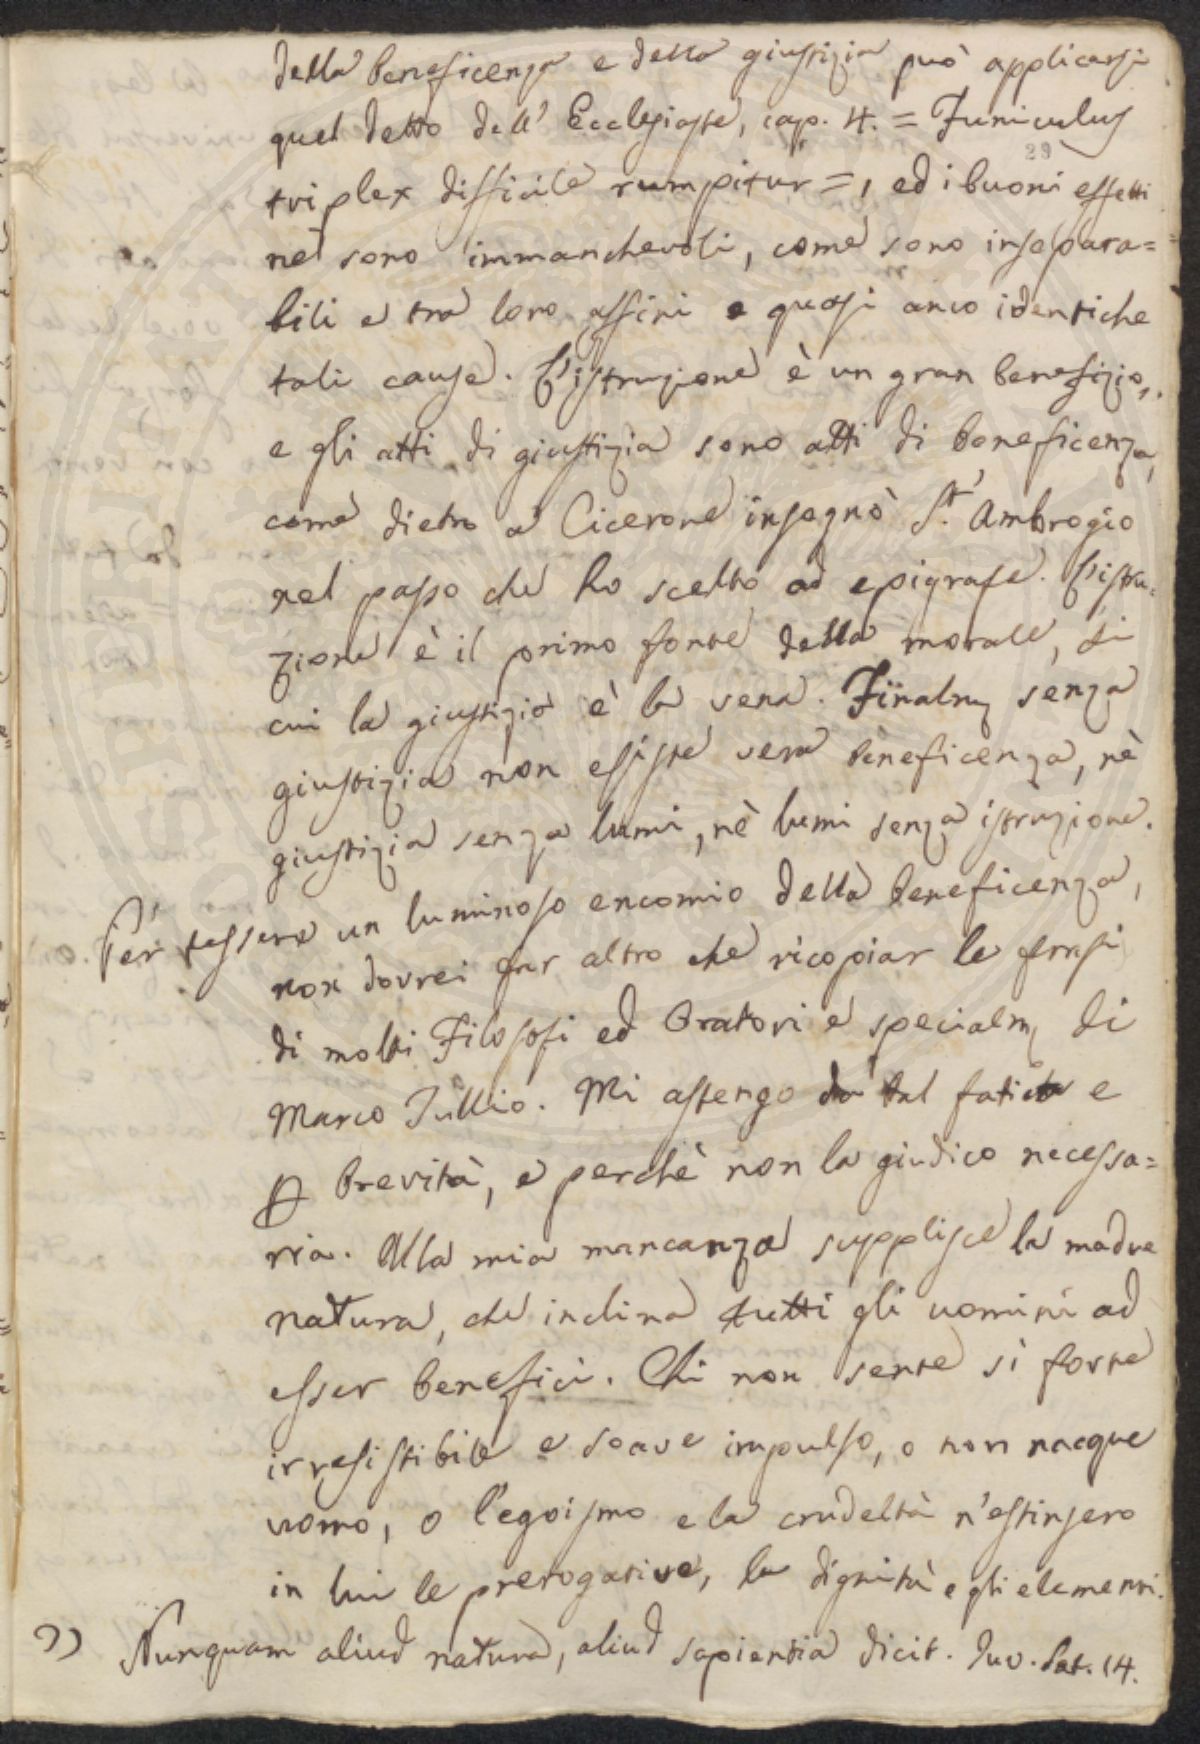 della beneficenza e della giustizia può applicarsi
quel detto dell' Ecclesiaste, cap. 4. = Funiculus
29
triplex difficile rumpitur =, ed i buoni effetti
ne sono immanchevoli, come sono insepara=
bili e tra loro affini e quasi anco identiche
tali cause. L'istruzione è un gran benefizio,
e gli atti di giustizia sono atti di beneficenza,
come dietro a Cicerone insegnò St. Ambrogio
nel passo che ho scelto ad epigrafe. L'istru=
zione è il primo fonte della morale, di
cui la giustizia è la vena. Finalm senza
giustizia non esiste vera beneficenza, nè
giustizia senza lumi, nè lumi senza istruzione.
Per tessere un luminoso encomio della beneficenza,
non dovrei far altro che ricopiar le frasi
di molti Filosofi ed Oratori e specialm di
Marco Tullio. Mi astengo da tal fatica e
P brevità, e perchè non la giudico necessa=
ria. Alla mia mancanza supplisce la madre
natura, che inclina tutti gli uomini ad
esser benefici. Chi non sente sì forte
irresistibile e soave impulso, o non nacque
uomo, o l'egoismo e la crudeltà n'estinsero
in lui le prerogative, la dignità e gli elementi.
")) Nunquam aliud natura, aliud sapientia dicit. Juv. Sat. 14.